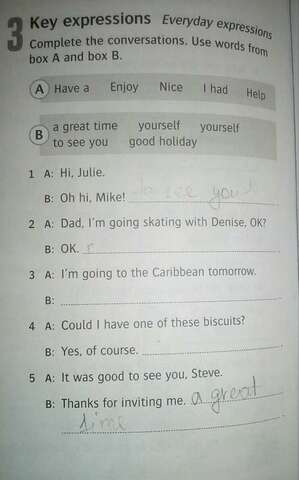 3 Key expressions Everyday expressions
Complete the conversations. Use words from
box A and box B.
A Have a Enjoy Nice I had Help
B a great time yourself yourself
to see you good holiday
1 A: Hi, Julie.
B: Oh hi, Mike! to see you
2 A: Dad, I'm going skating with Denise, OK?
B: OK.
3 A: I'm going to the Caribbean tomorrow.
B:
4 A: Could I have one of these biscuits?
B: Yes, of course.
5 A: It was good to see you, Steve.
B: Thanks for inviting me. a great
time